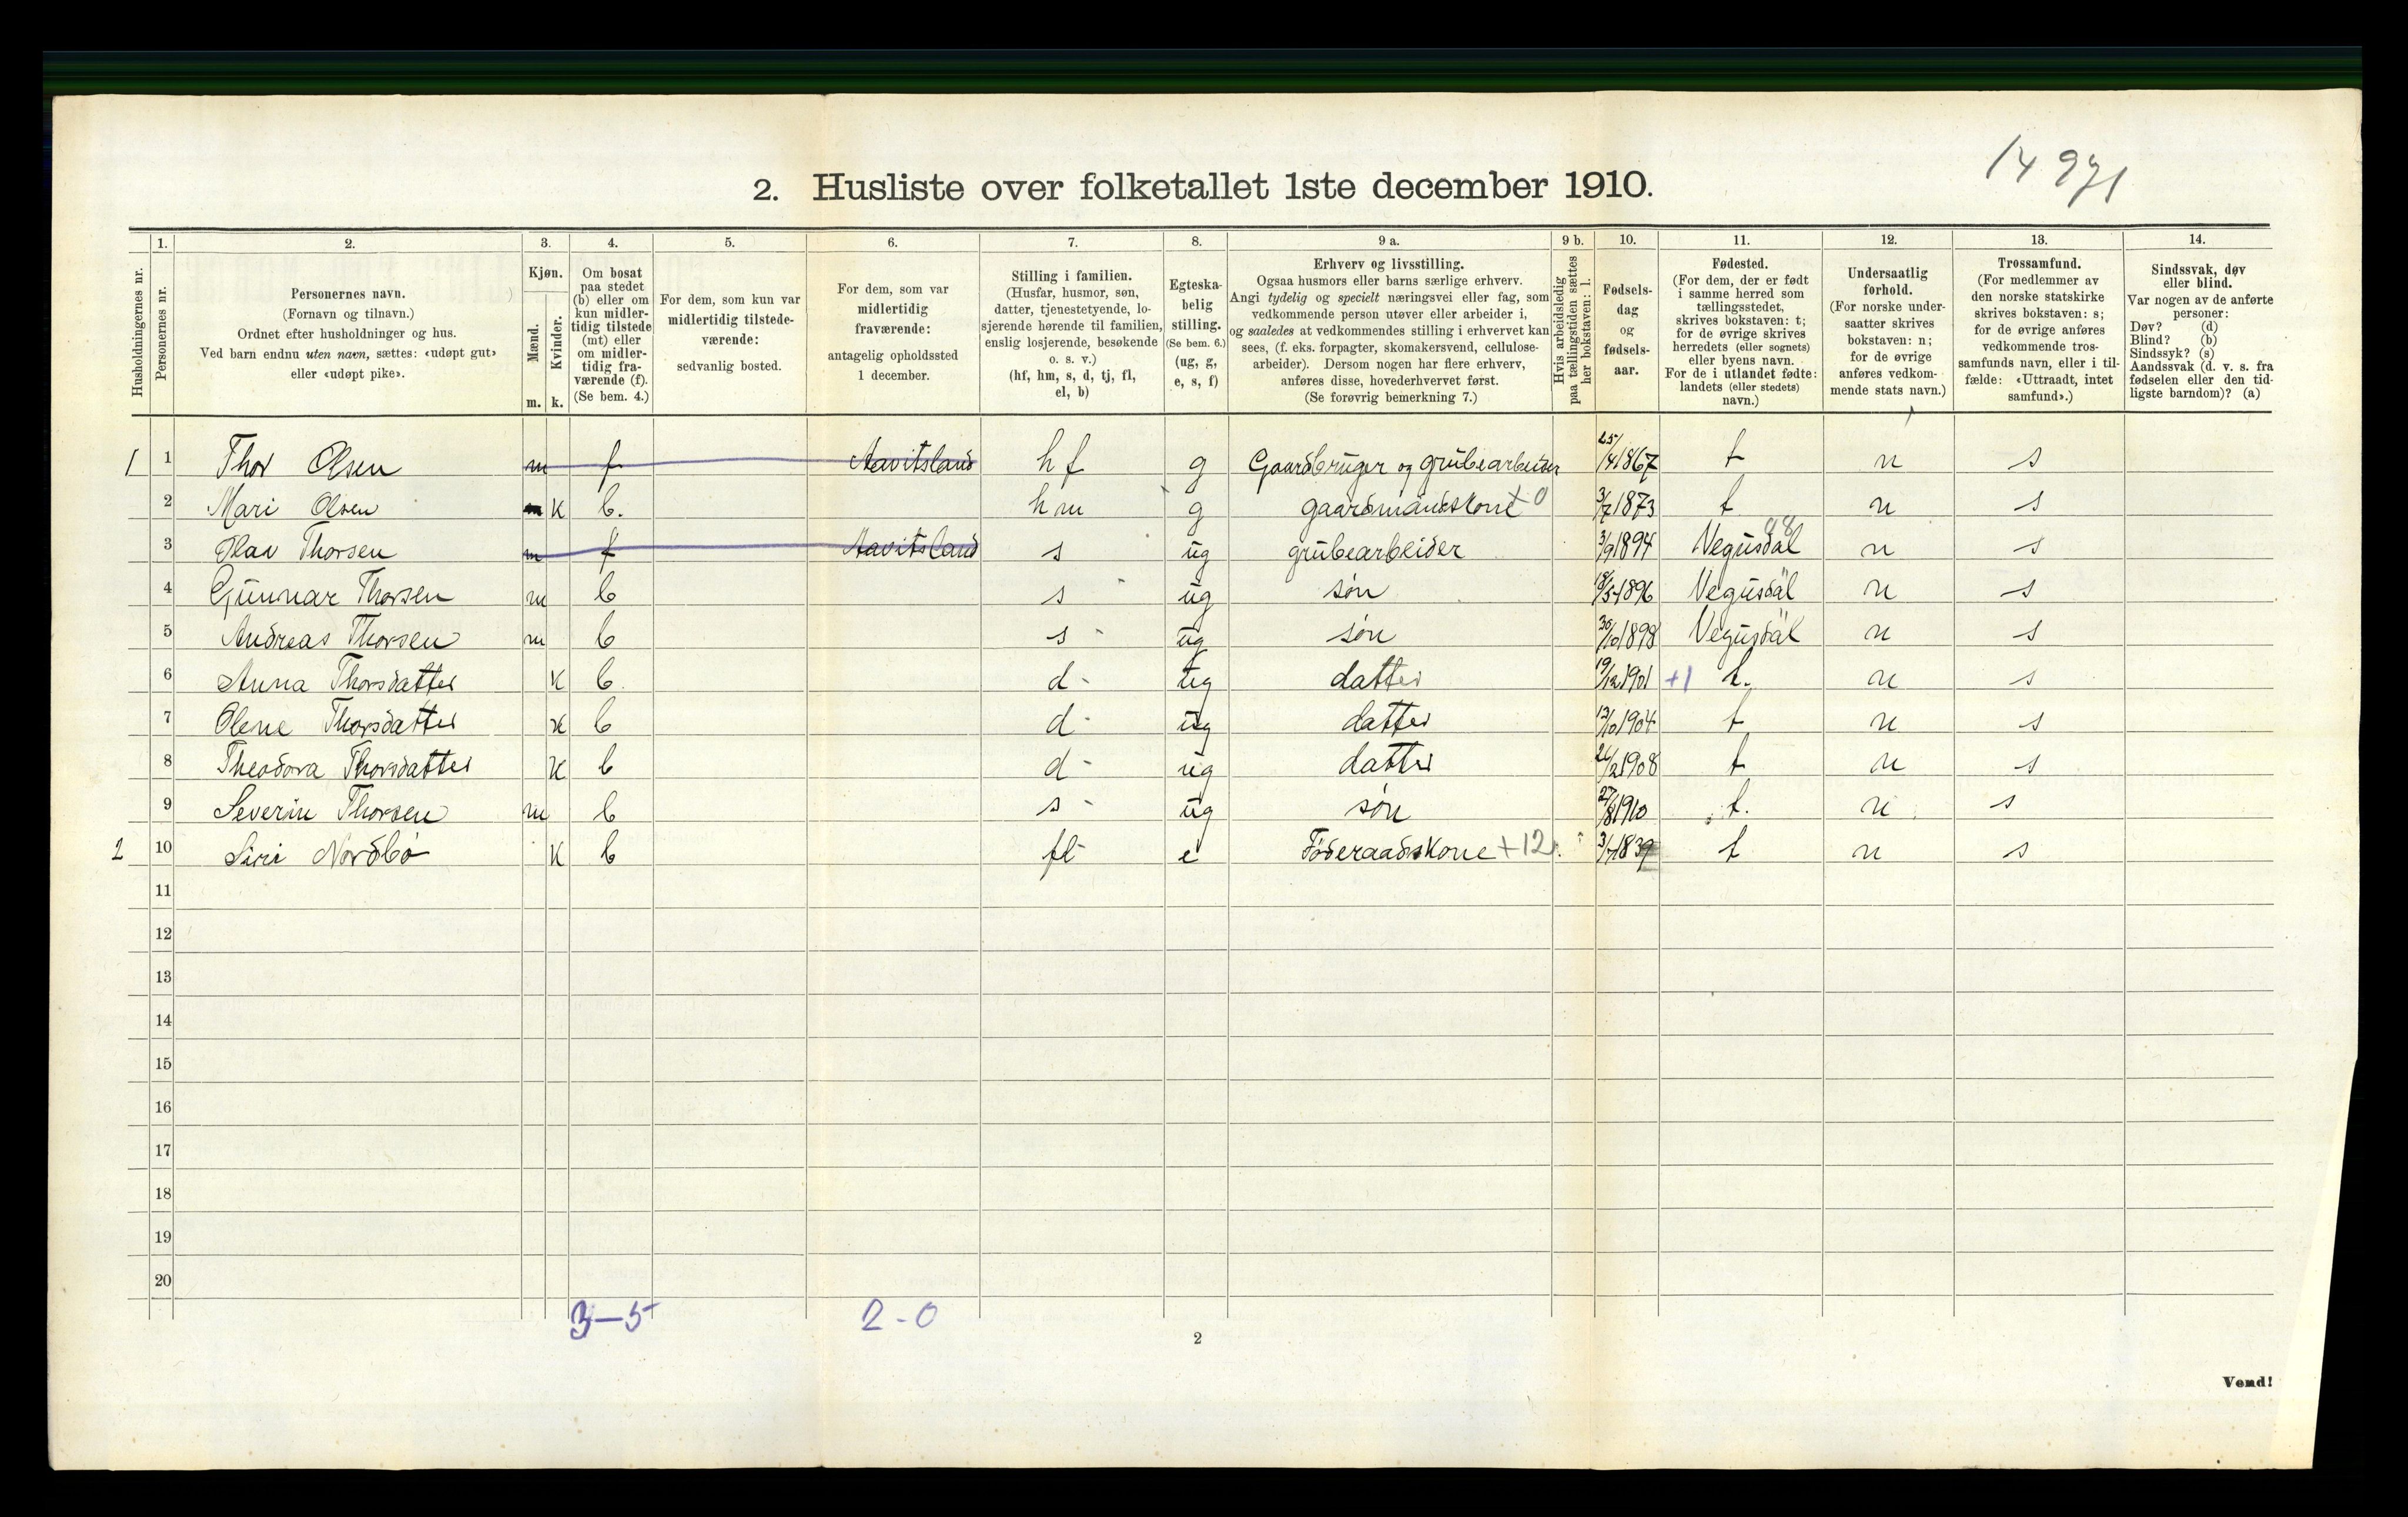 14 971
2. Husliste over folketallet 1ste december 1910.
Husholdningernes nr.
1. Personernes nr.
2. Personernes navn. (Fornavn og tilnavn.) Ordnet efter husholdninger og hus. Ved barn endnu uten navn, sættes: «udøpt gut» eller «udøpt pike».
3. Kjøn. Mænd. m. Kvinder. k.
4. Om bosat paa stedet (b) eller om kun midlertidig tilstede (mt) eller om midlertidig fraværende (f). (Se bem. 4.)
5. For dem, som kun var midlertidig tilstedeværende: sedvanlig bosted.
6. For dem, som var midlertidig fraværende: antagelig opholdssted 1 december.
7. Stilling i familien. (Husfar, husmor, søn, datter, tjenestetyende, losjerende hørende til familien, enslig losjerende, besøkende o. s. v.) (hf, hm, s, d, tj, fl, el, b)
8. Egteskabelig stilling. (Se bem. 6.) (ug, g, e, s, f)
9 a. Erhverv og livsstilling. Ogsaa husmors eller barns særlige erhverv. Angi tydelig og specielt næringsvei eller fag, som vedkommende person utøver eller arbeider i, og saaledes at vedkommendes stilling i erhvervet kan sees, (f. eks. forpagter, skomakersvend, cellulosearbeider). Dersom nogen har flere erhverv, anføres disse, hovederhvervet først. (Se forøvrig bemerkning 7.)
9 b. Hvis arbeidsledig paa tællingstiden sættes her bokstaven: l.
10. Fødselsdag og fødselsaar.
11. Fødested. (For dem, der er født i samme herred som tællingsstedet, skrives bokstaven: t; for de øvrige skrives herredets (eller sognets) eller byens navn. For de i utlandet fødte: landets (eller stedets) navn.)
12. Undersaatlig forhold. (For norske undersaatter skrives bokstaven: n; for de øvrige anføres vedkommende stats navn.)
13. Trossamfund. (For medlemmer av den norske statskirke skrives bokstaven: s; for de øvrige anføres vedkommende trossamfunds navn, eller i tilfælde: «Uttraadt, intet samfund».)
14. Sindssvak, døv eller blind. Var nogen av de anførte personer: Døv? (d) Blind? (b) Sindssyk? (s) Aandssvak (d. v. s. fra fødselen eller den tidligste barndom)? (a)
1 1 Thor Olsen m f Aavitsland hf g Gaardbruger og grubearbeider 25/4 1867 t n s
2 Mari Olsen k b. hm g gaardmandskone +0 3/7 1873 t n s
3 Olav Thorsen m f Aavitsland s ug grubearbeider 3/9 1894 Vegusdal n s
4 Gunnar Thorsen m b s ug søn 18/5 1896 Vegusdal n s
5 Andreas Thorsen m b s ug søn 30/10 1898 Vegusdal n s
6 Anna Thorsdatter k b d ug datter 19/12 1901 +1 t. n s
7 Olene Thorsdatter k b d ug datter 12/10 1904 t n s
8 Theodora Thorsdatter k b d ug datter 26/2 1908 t n s
9 Severin Thorsen m b s ug søn 27/8 1910 t. n s
2 10 Siri Nordbø k b fl e Føderaadskone +12 3/7 1839 t n s
11
12
13
14
15
16
17
18
19
20
3-5 2-0
2
Vend!